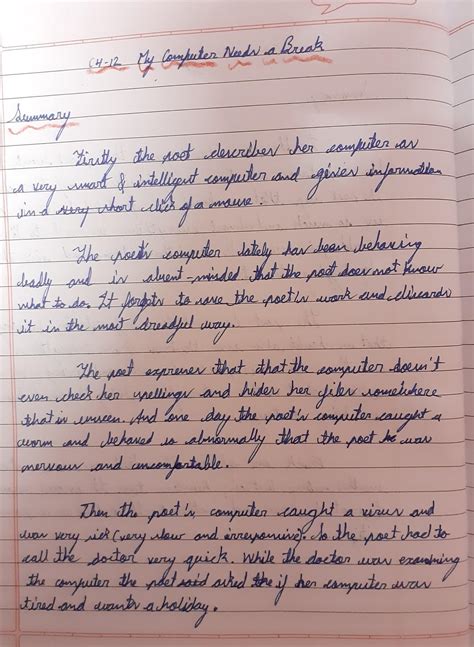 Ch-12 My Computer Needs a Break
Summary
Firstly the poet describes her computer as
a very smart & intelligent computer and gives information
in a very short click of a mouse
The poet's computer lately has been behaving
badly and is absent-minded that the poet does not know
what to do. It forgets to save the poet's work and discards
it in the most dreadful way.
The poet expresses that that the computer doesn't
even check her spellings and hides her files somewhere
that is unseen. And one day the poet's computer caught a
worm and behaved so abnormally that the poet was
nervous and uncomfortable.
Then the poet's computer caught a virus and
was very sick (very slow and irresponsive). So the poet had to
call the doctor very quick. While the doctor was examining
the computer the poet said asked if her computer was
tired and wants a holiday.